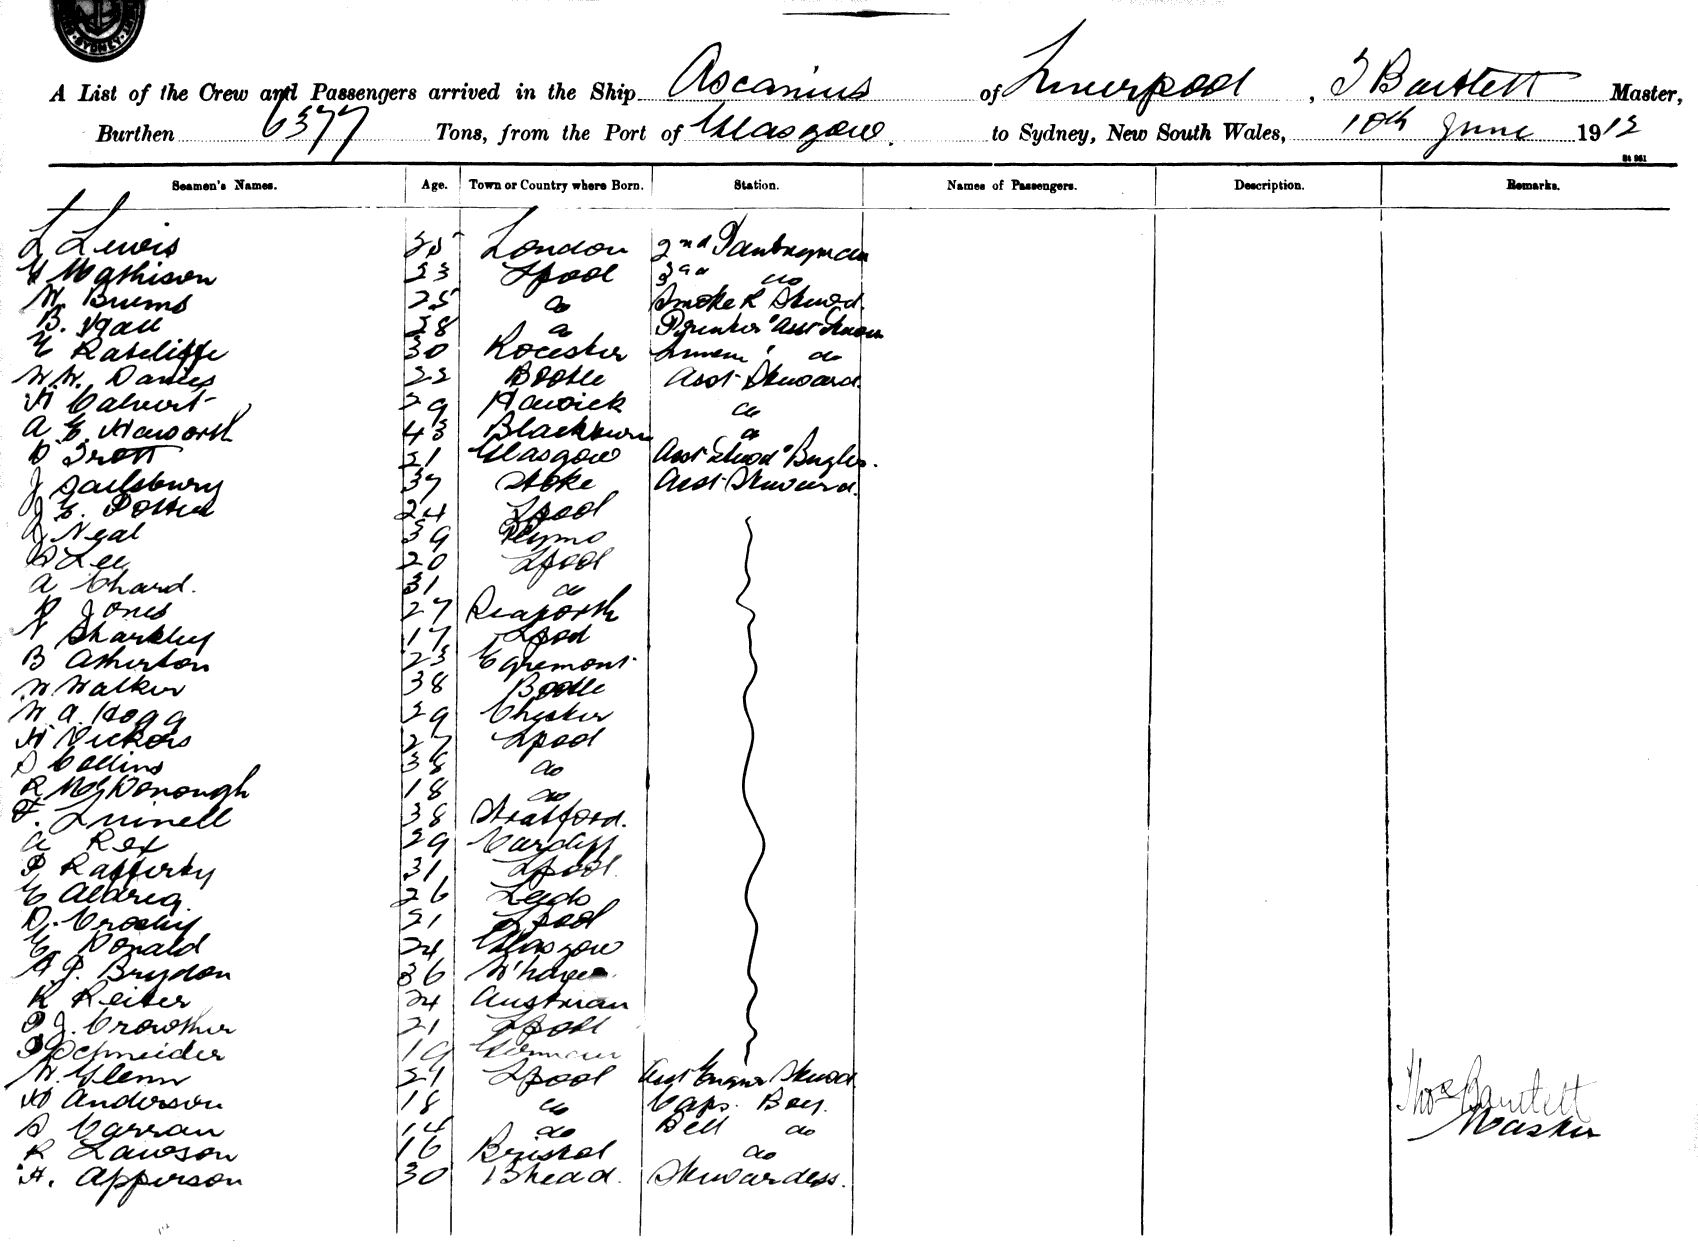 SYDNEY
A List of the Crew and Passengers arrived in the Ship Ascanius of Liverpool, T Bartlett Master,
Burthen 6377 Tons, from the Port of Glasgow. to Sydney, New South Wales, 10th June 1912
Seamen's Names. Age. Town or Country where Born. Station. Names of Passengers. Description. Remarks.
L Lewis 25 London 2nd Pantryman
Mathison 23 Lpool 3rd do
W. Burns 25 do Smoke R Stewd.
B. Hall 28 do Asst
E Ratcliffe 30 Rocester Linen do
W.W. Davies 22 Bootle Asst Steward.
H Calvert 29 Hawick do
A E Haworth 43 Blackburn do
D Trott 21 Glasgow Asst Stewd & Bugler.
J Sailsbury 37 Stoke Asst Steward.
J E. Potter 24 Lpool
J Neal 39 Plymo
Lee 20 Lpool
A Chard. 31 do
R Jones 27 Seaforth
Sharkley 17 Lpool
B Atherton 23 Egremont
W Walker 38 Bootle
W A. Hogg 29 Chester
H Vickers 27 Lpool
S Collins 38 do
R McDonough 18 do
F. Luinell 38 Stratford.
A Rex 29 Cardiff
P Rafferty 31 Lpool.
E Aldreg. 26 Leeds
D. Crosby 21 Lpool
E. Donald 24 Glasgow
J. Brydon 36 W'haven
K Reiter 24 Austrian
P J. Crowther 21 Lpool
P Schneider 19 German
W. Glenn 21 Lpool Asst Stewd
H Anderson 18 do Caps. Boy.
S Carran 14 do Bell do
R Lawson 16 Bristol do
H. Apperson 30 Bhead. Stewardess.
Thos Bartlett
Master